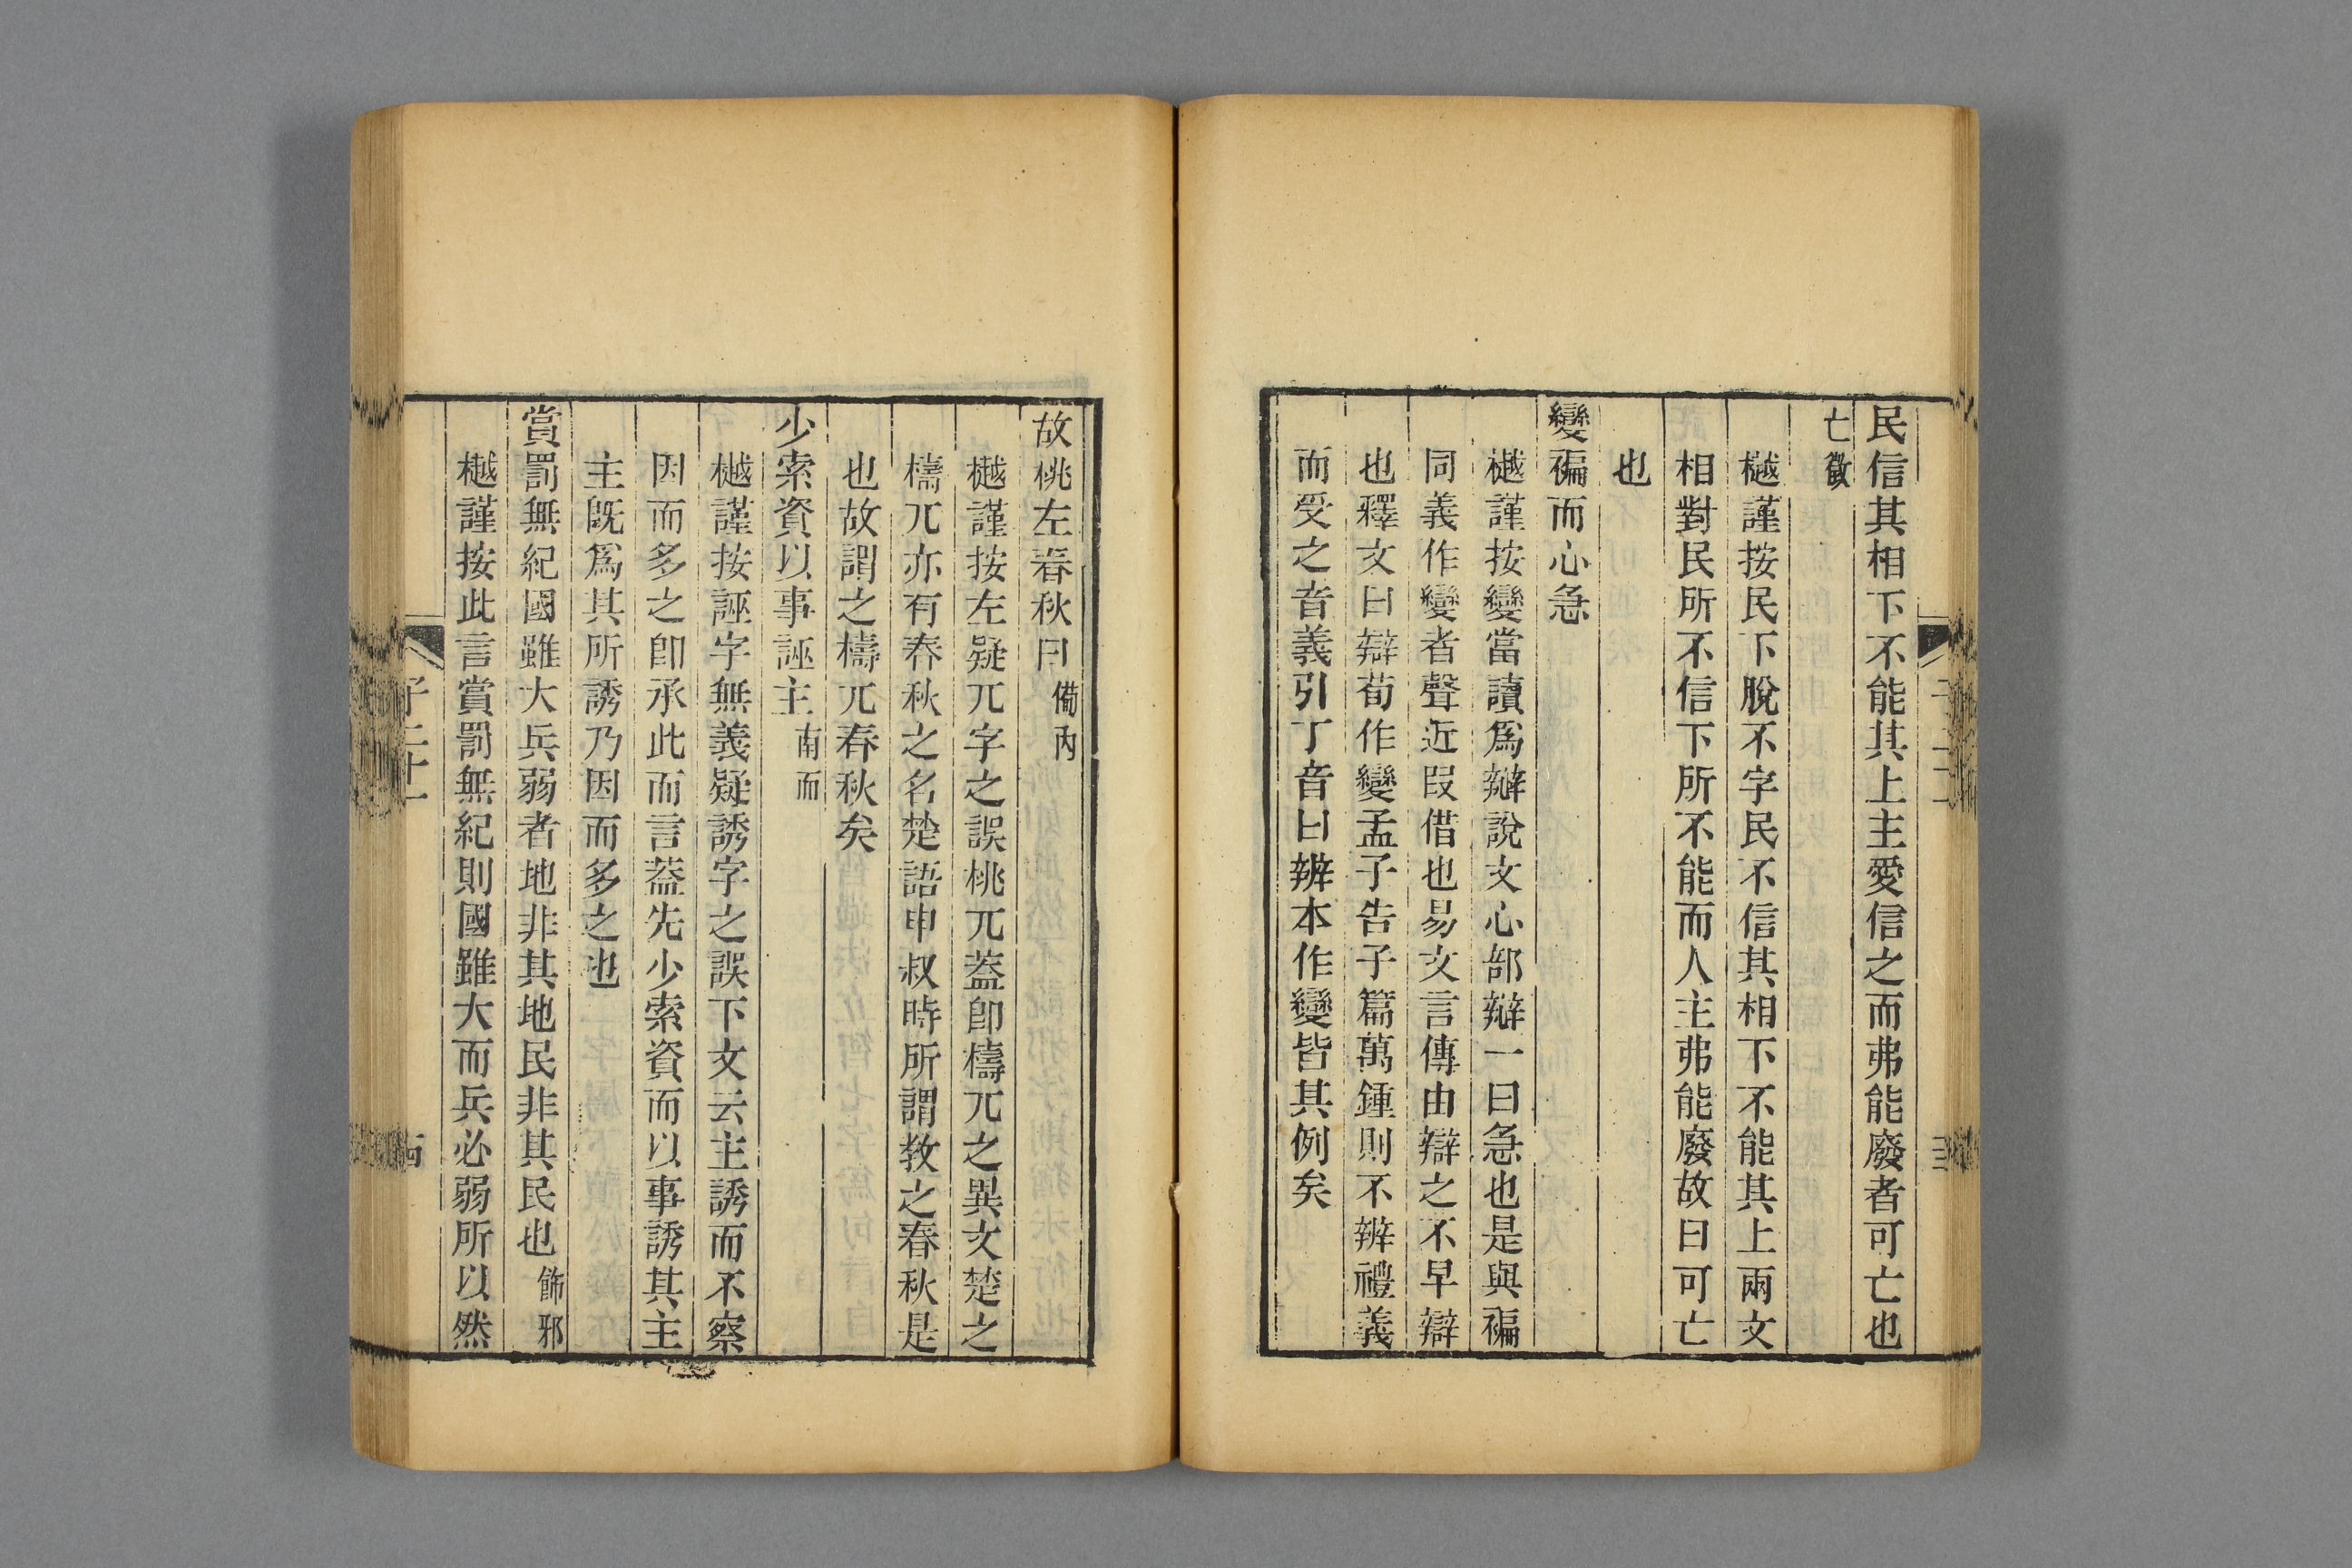 民信其相下不能其上主愛信之而弗能廢者可亡也
亡徵
樾謹按民下脫不字民不信其相下不能其上兩文
相對民所不信下所不能而人主弗能廢故曰可亡
也
變褊而心急
樾謹按變當讀爲辯說文心部辯一曰急也是與褊
同義作變者聲近叚借也易文言傳由辯之不早辯
也釋文曰辯荀作變孟子告子篇萬鍾則不辨禮義
而受之音義引丁音曰辨本作變皆其例矣
故桃左春秋曰備內
樾謹按左疑兀字之誤桃兀葢卽檮兀之異文楚之
檮兀亦有春秋之名楚語申叔時所謂敎之春秋是
也故謂之檮兀春秋矣
少索資以事誣主南面
樾謹按誣字無義疑誘字之誤下文云主誘而不察
因而多之卽承此而言葢先少索資而以事誘其主
主旣爲其所誘乃因而多之也
賞罰無紀國雖大兵弱者地非其地民非其民也飾邪
樾謹按此言賞罰無紀則國雖大而兵必弱所以然
子二十一